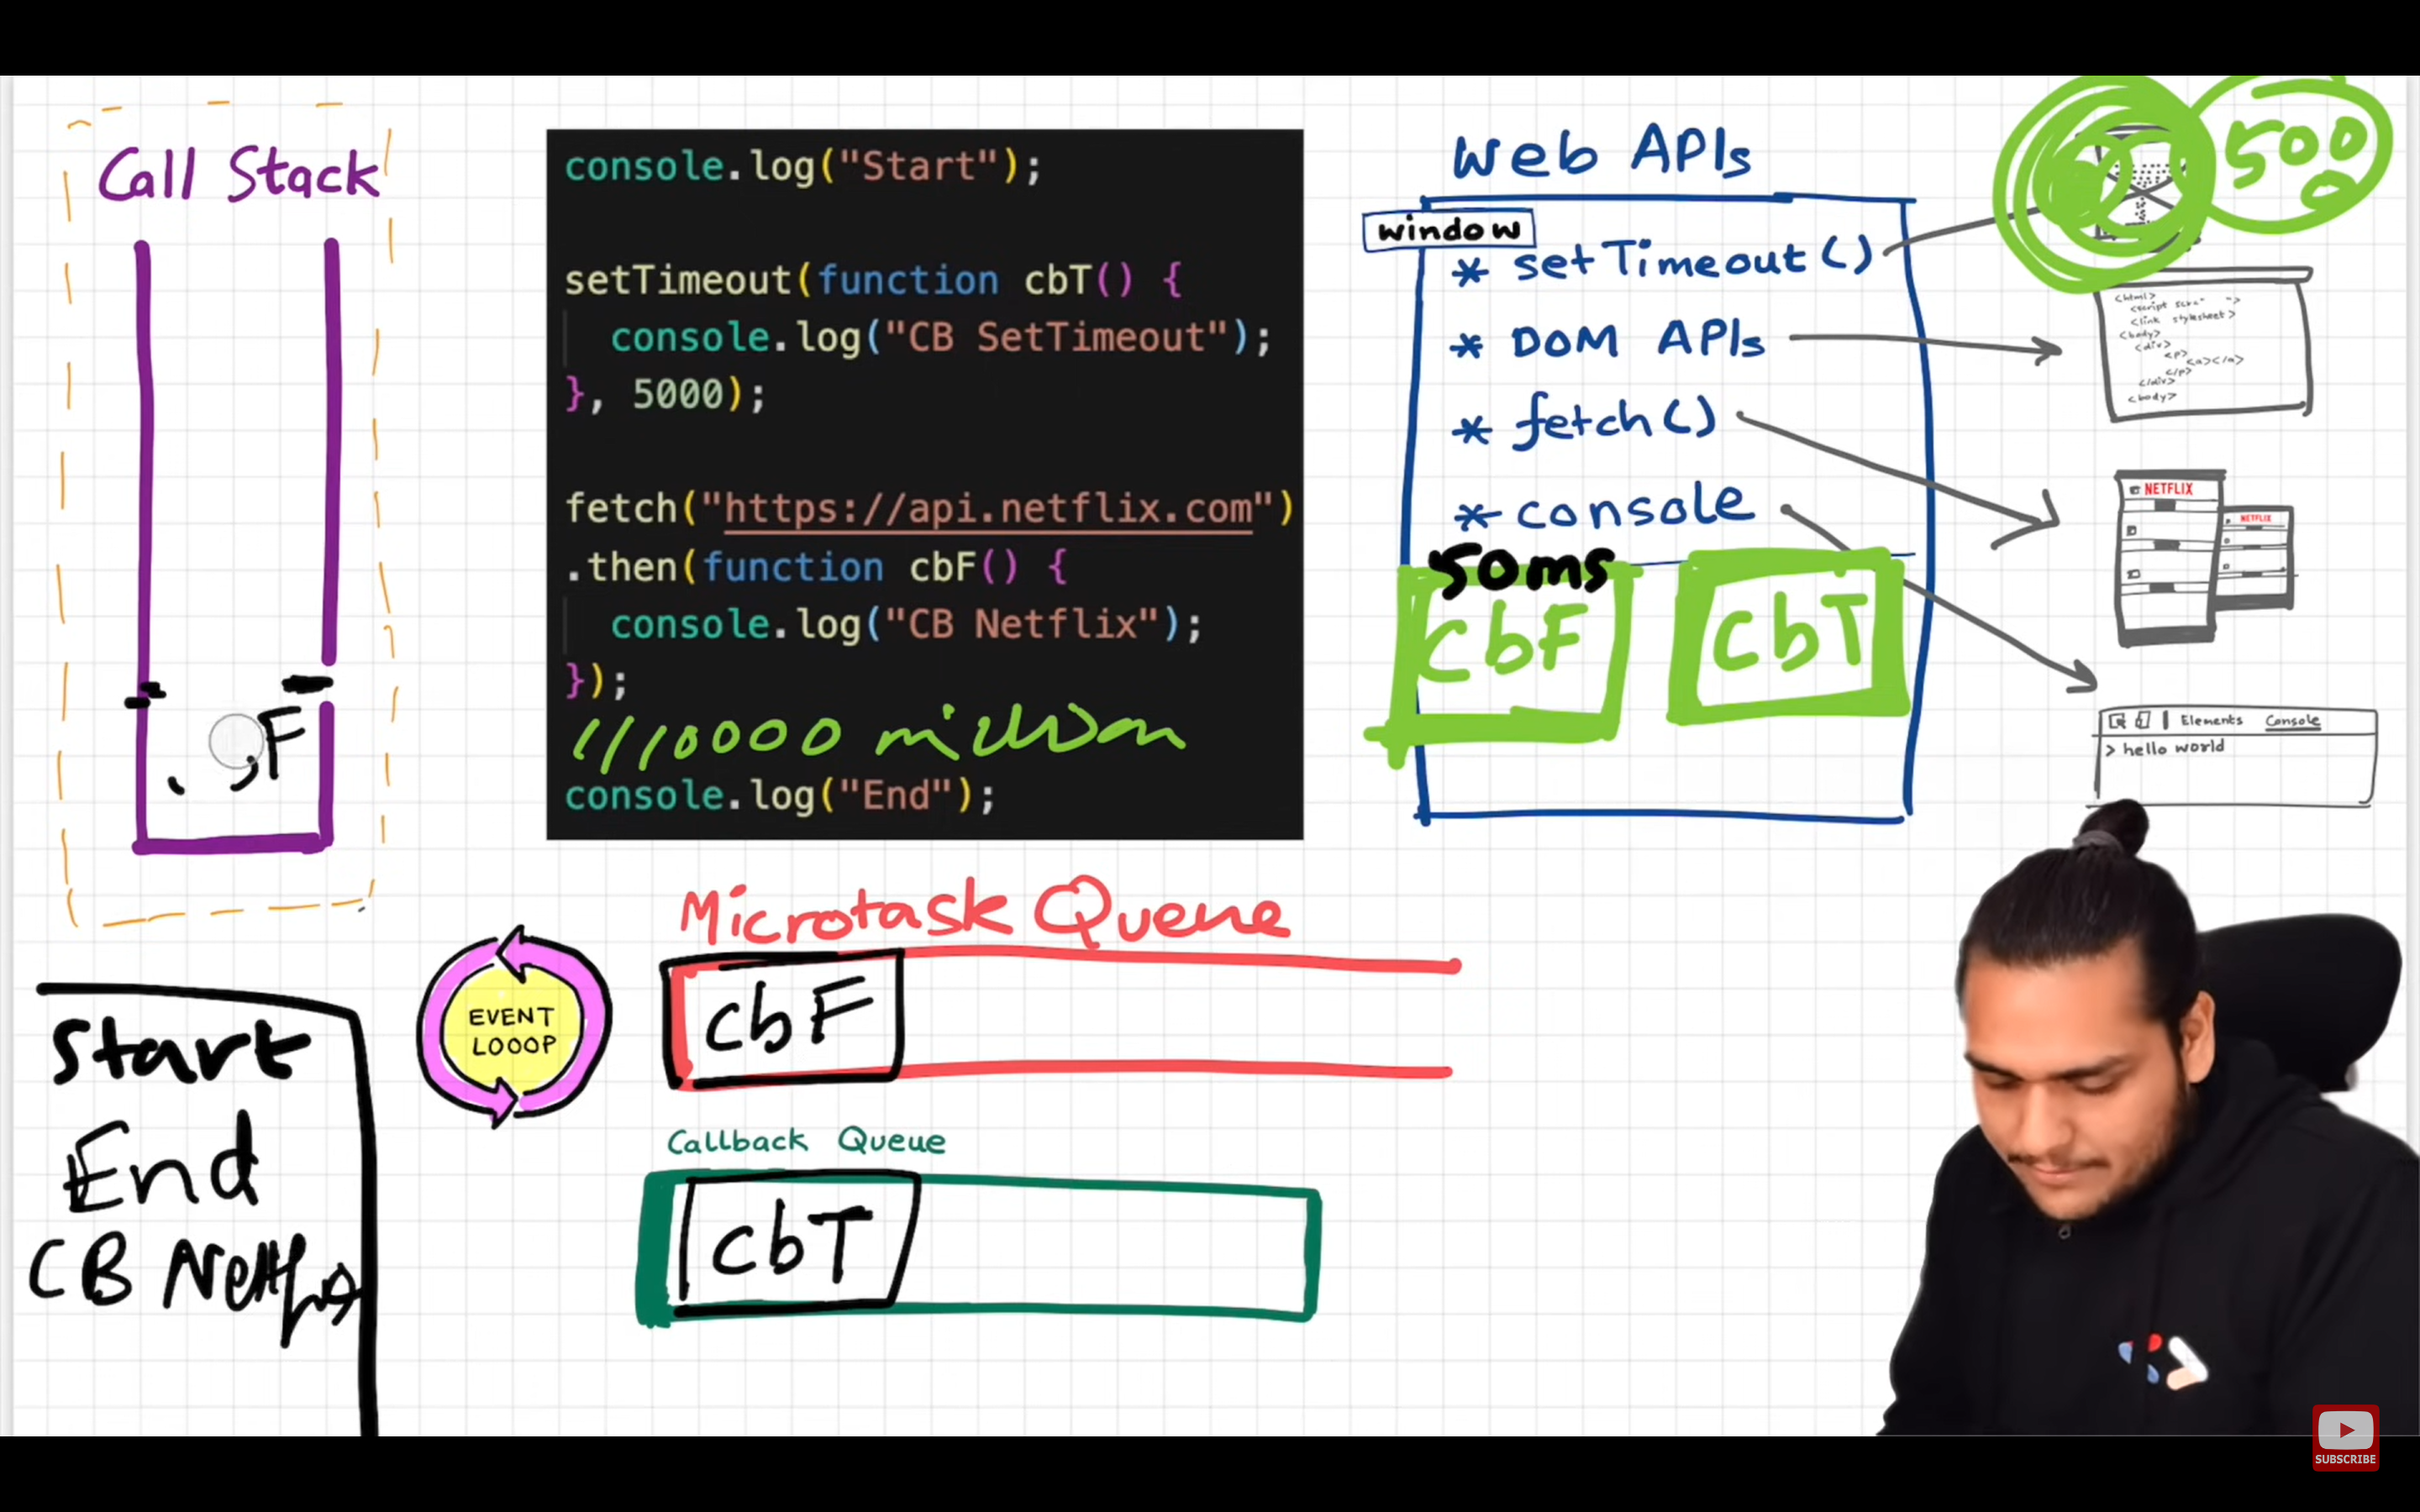 Call Stack
F
console.log("Start");
setTimeout(function cbT() {
console.log("CB SetTimeout");
}, 5000);
fetch("https://api.netflix.com")
.then(function cbF() {
console.log("CB Netflix");
});
1110000 million
console.log("End");
Web APIs
window
* setTimeout()
* DOM APIs
* fetch()
* console
50ms
cbF
cbT
500
0
<html>
<link stylesheet>
<body>
<div>
<p>
<a></a>
</p>
</div>
<body>
NETFLIX
NETFLIX
Elements Console
> hello world
EVENT
LOOOP
Microtask Queue
cbF
Callback Queue
cbT
Start
End
CB
SUBSCRIBE